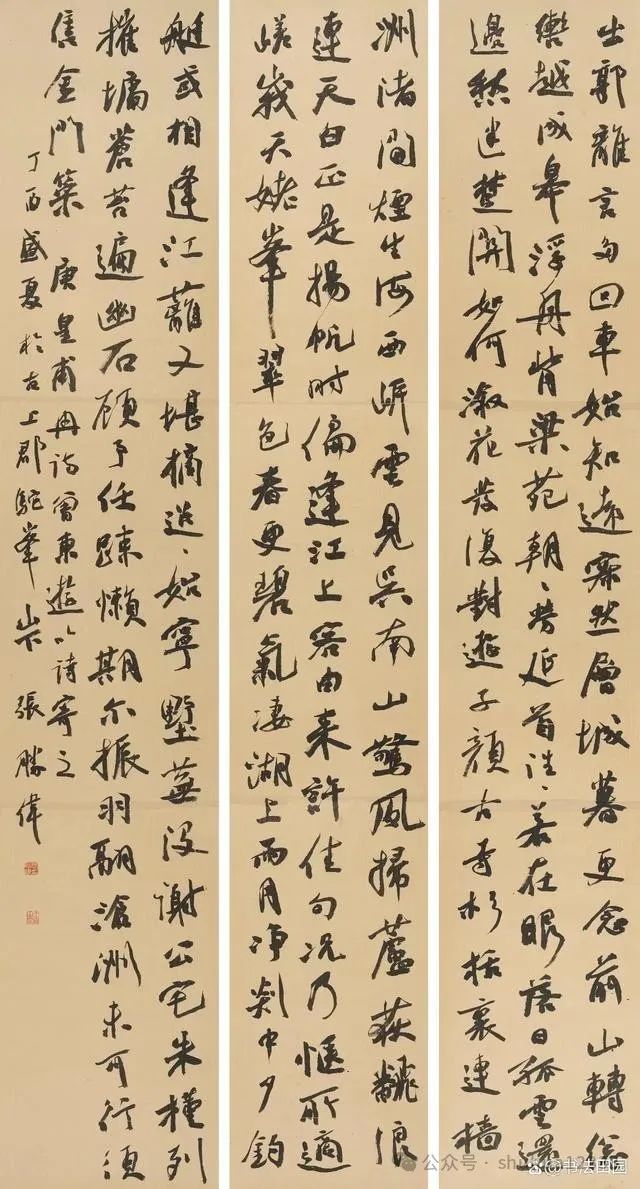 出郭離言多回車始知遠寂然層城暮更念前山轉總
轡越成皋浮舟背梁苑朝々勞延首往々若在眼落日孤雲還
邊愁迷楚關如何溆花發復對遊子顏古寺杉栝裏連檣
洲渚間煙生海西岸雲見吳南山驚風掃蘆荻翻浪
連天白正是揚帆時偏逢江上客由来許佳句況乃愜所適
嵯峨天姥峯翠色春更碧氣凄湖上雨月净剡中夕釣
艇或相逢江蘺又堪摘迢々始寧墅蕪没謝公宅朱槿列
摧墉蒼苔遍幽石顧予任疎懶期尔振羽翮滄洲未可行須
售金門策 唐皇甫冉詩曾東遊以詩寄之
丁酉盛夏於古上郡駝峯山下張勝偉
公众号
书法田园